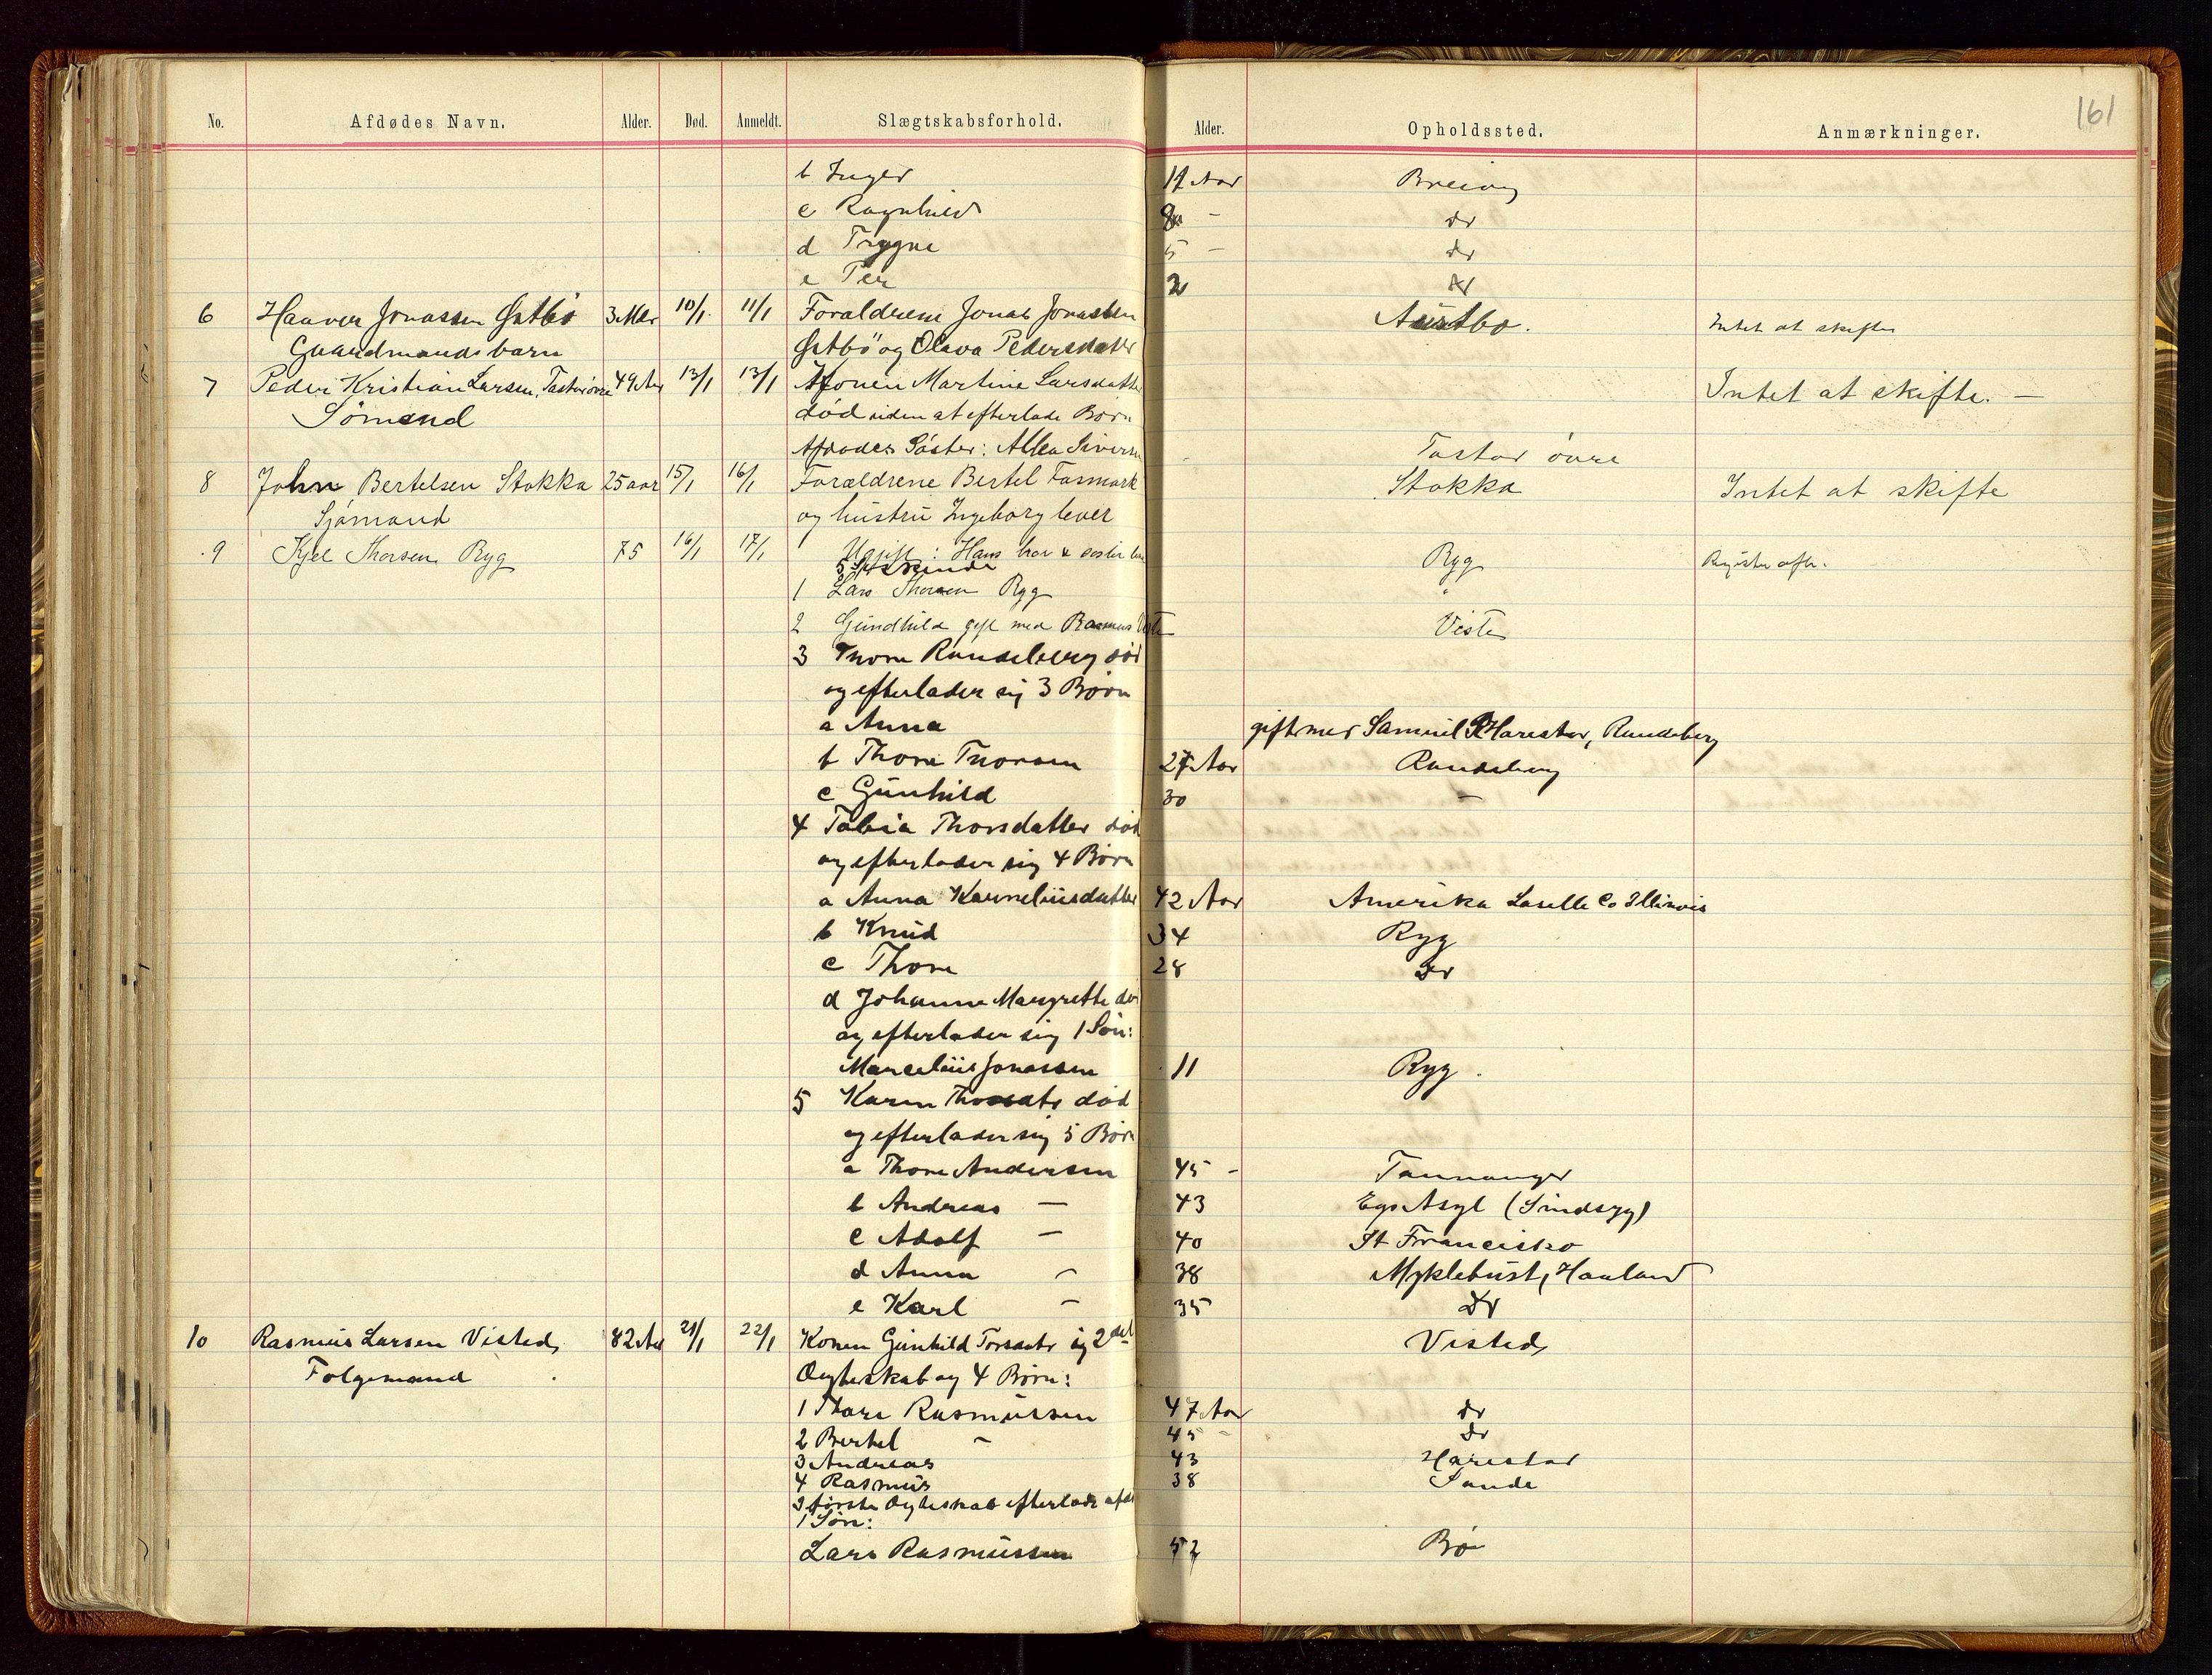 161
No. Afdødes Navn. Alder. Død. Anmeldt. Slægtskabsforhold. Alder. Opholdssted. Anmærkninger.
b Inger 11 Aar Breivig
c Ragnhild 8 - do
d Trygve 5 - do
e Per 2 do
6 Haaver Jonassen Østbö 3 Mdr 10/1 11/1 Forældrene Jonas Jonassen Austbø. Intet at skifte
Gaardmandsbarn Østbö og Olava Pedersdatter
7 Peder Kristian Larsen, Tastarøvre 49 Aar 13/1 13/1 Konen Martine Larsdatter Intet at skifte. —
Sömand död uden at efterlade Börn
Afdödes Söster: Sivers Tastar övre
8 John Bertelsen Stokka 25 aar 15/1 16/1 Forældrene Bertel Fasmark Stokka Intet at skifte
Sjömand og hustru Ingeborg lever
9 Kjel Thorsen Ryg 75 16/1 17/1 Ugift: Hans bror & søster Ryg
5 Søskende
1 Lars Thorsen Ryg "
2 Gundhild gift med Rasmus Viste Viste
3 Thore Randeberg död
og efterlader sig 3 Børn
a Anna gift med Samuel Harestad, Randeberg
b Thore Thorsen 27 Aar Randeberg
c Gunhild 30 —
4 Tabia Thorsdatter död
og efterlader sig 4 Børn
a Anna Korneliusdatter 42 Aar Amerika Laselle Co Illinois
b Knud 34 Ryg
c Thore 28 do
d Johanne Margrethe död
og efterlader sig 1 Sön:
Marcelius Jonassen 11 Ryg.
5 Karen Thorsdtr död
og efterlader sig 5 Børn
a Thore Andersen 45 - Tannanger
b Andreas — 43 Egs Asyl (Sindsyg)
c Adolf — 40 St Francisko
d Anna — 38 Myklebust, Haaland
e Karl — 35 do
10 Rasmus Larsen Visted, 82 Aar 21/1 22/1 Konen Gunhild Torsdatr i 2det Visted,
Folgemand Ægteskab og 4 Børn:
1 Thore Rasmussen 47 Aar do
2 Bertel — 45 - do
3 Andreas 43 Harestad
4 Rasmus 38 Sande
I første Ægteskab efterlod afdø
1 Søn:
Lars Rasmussen 52 Bö